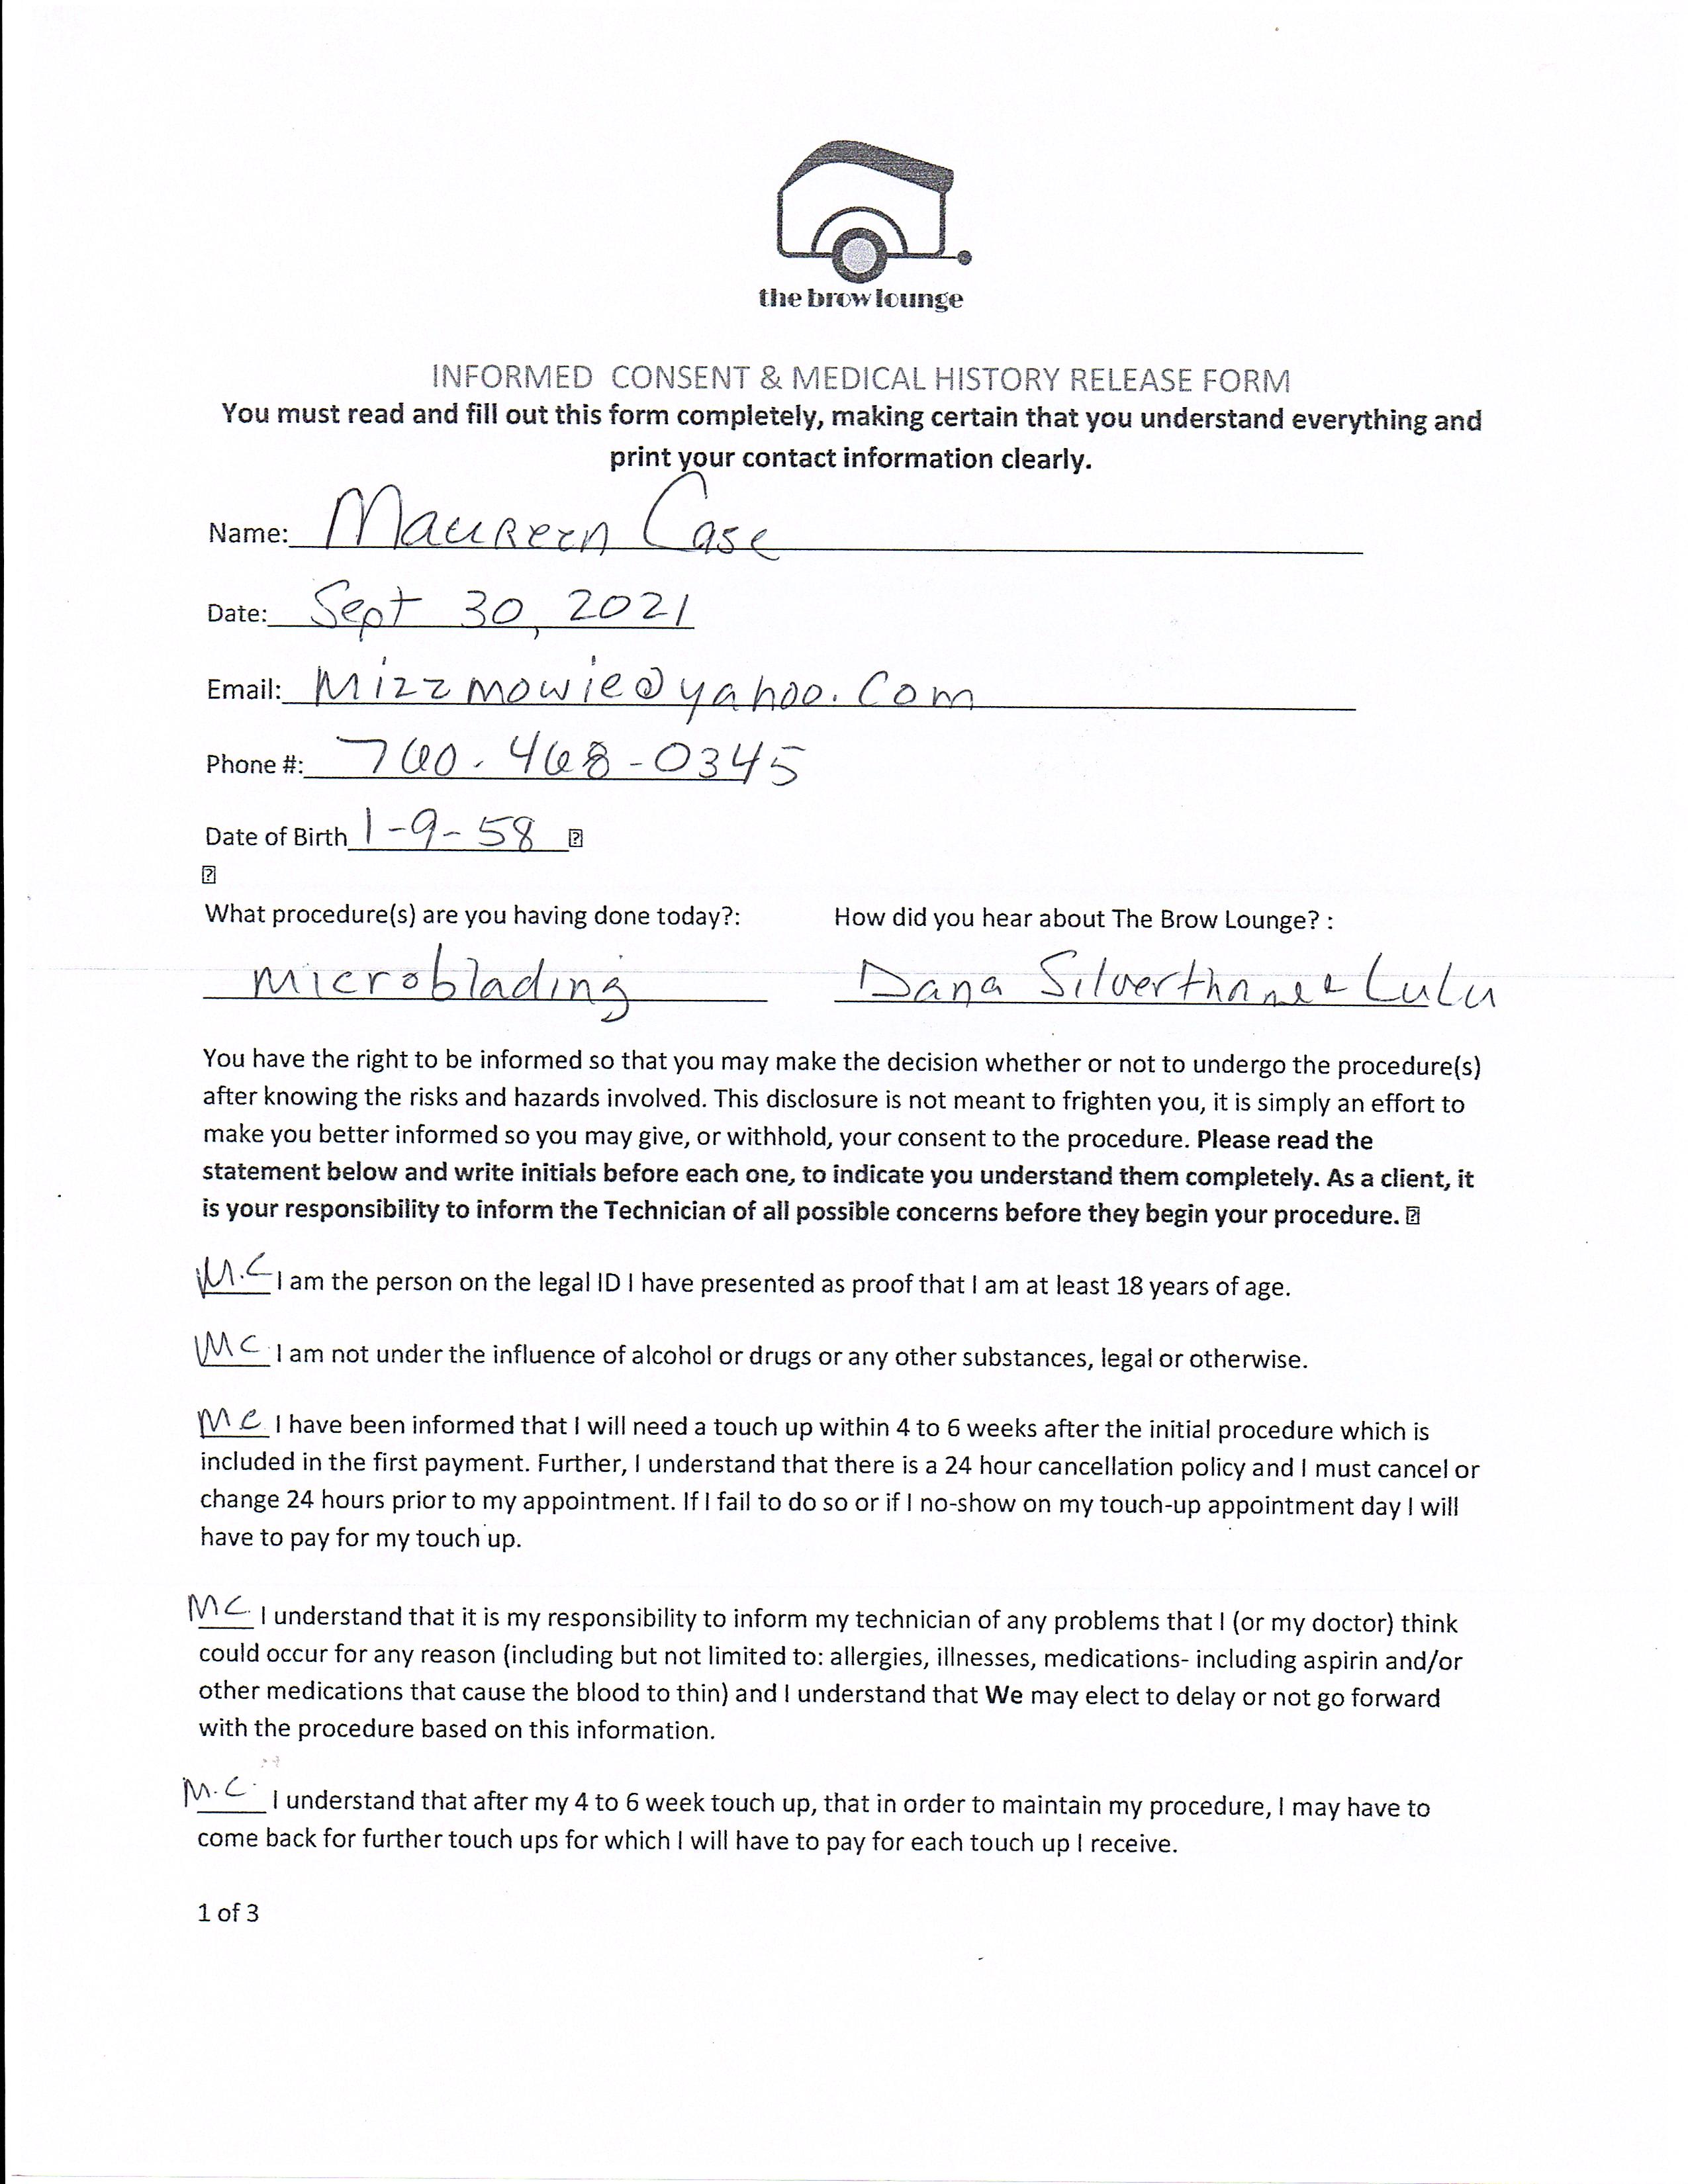 the brow lounge
INFORMED CONSENT & MEDICAL HISTORY RELEASE FORM
You must read and fill out this form completely, making certain that you understand everything and
print your contact information clearly.
Name: Maureen Case
Date: Sept 30, 2021
Email: Mizzmowie@yahoo.com
Phone #: 760-468-0345
Date of Birth 1-9-58
What procedure(s) are you having done today?: How did you hear about The Brow Lounge? :
microblading Dana Silverthorne & LuLu
You have the right to be informed so that you may make the decision whether or not to undergo the procedure(s)
after knowing the risks and hazards involved. This disclosure is not meant to frighten you, it is simply an effort to
make you better informed so you may give, or withhold, your consent to the procedure. Please read the
statement below and write initials before each one, to indicate you understand them completely. As a client, it
is your responsibility to inform the Technician of all possible concerns before they begin your procedure.
M.C I am the person on the legal ID I have presented as proof that I am at least 18 years of age.
MC I am not under the influence of alcohol or drugs or any other substances, legal or otherwise.
MC I have been informed that I will need a touch up within 4 to 6 weeks after the initial procedure which is
included in the first payment. Further, I understand that there is a 24 hour cancellation policy and I must cancel or
change 24 hours prior to my appointment. If I fail to do so or if I no-show on my touch-up appointment day I will
have to pay for my touch up.
MC. I understand that it is my responsibility to inform my technician of any problems that I (or my doctor) think
could occur for any reason (including but not limited to: allergies, illnesses, medications- including aspirin and/or
other medications that cause the blood to thin) and I understand that We may elect to delay or not go forward
with the procedure based on this information.
M.C. I understand that after my 4 to 6 week touch up, that in order to maintain my procedure, I may have to
come back for further touch ups for which I will have to pay for each touch up I receive.
1 of 3